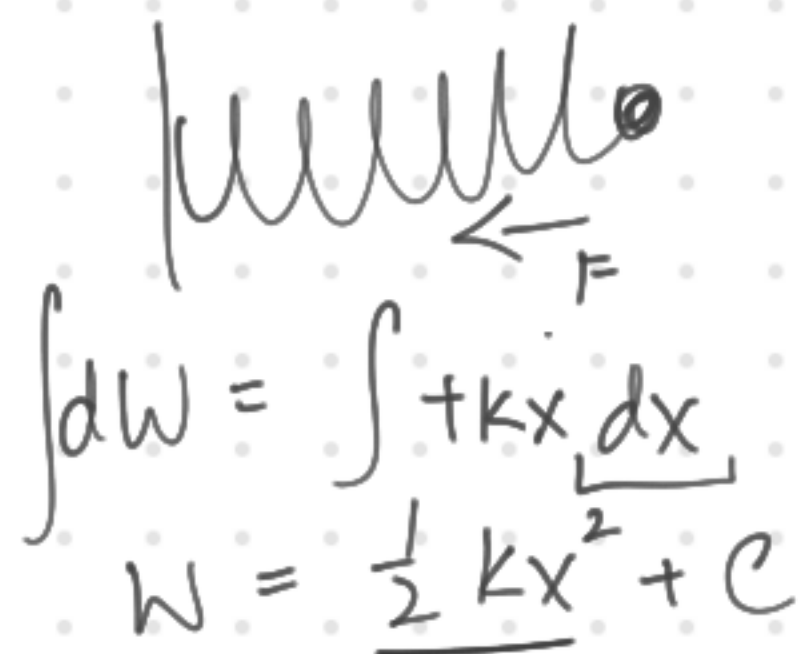 F
∫dW = ∫ +kx dx
W = 1/2 kx² + C